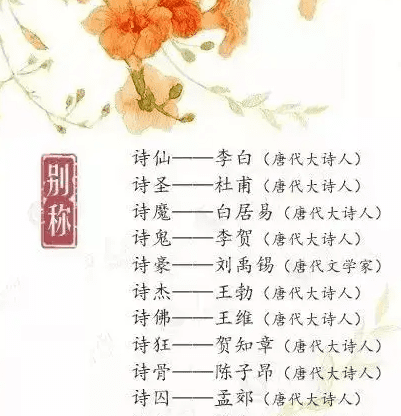 别称
诗仙——李白（唐代大诗人）
诗圣——杜甫（唐代大诗人）
诗魔——白居易（唐代大诗人）
诗鬼——李贺（唐代大诗人）
诗豪——刘禹锡（唐代文学家）
诗杰——王勃（唐代大诗人）
诗佛——王维（唐代大诗人）
诗狂——贺知章（唐代大诗人）
诗骨——陈子昂（唐代大诗人）
诗囚——孟郊（唐代大诗人）